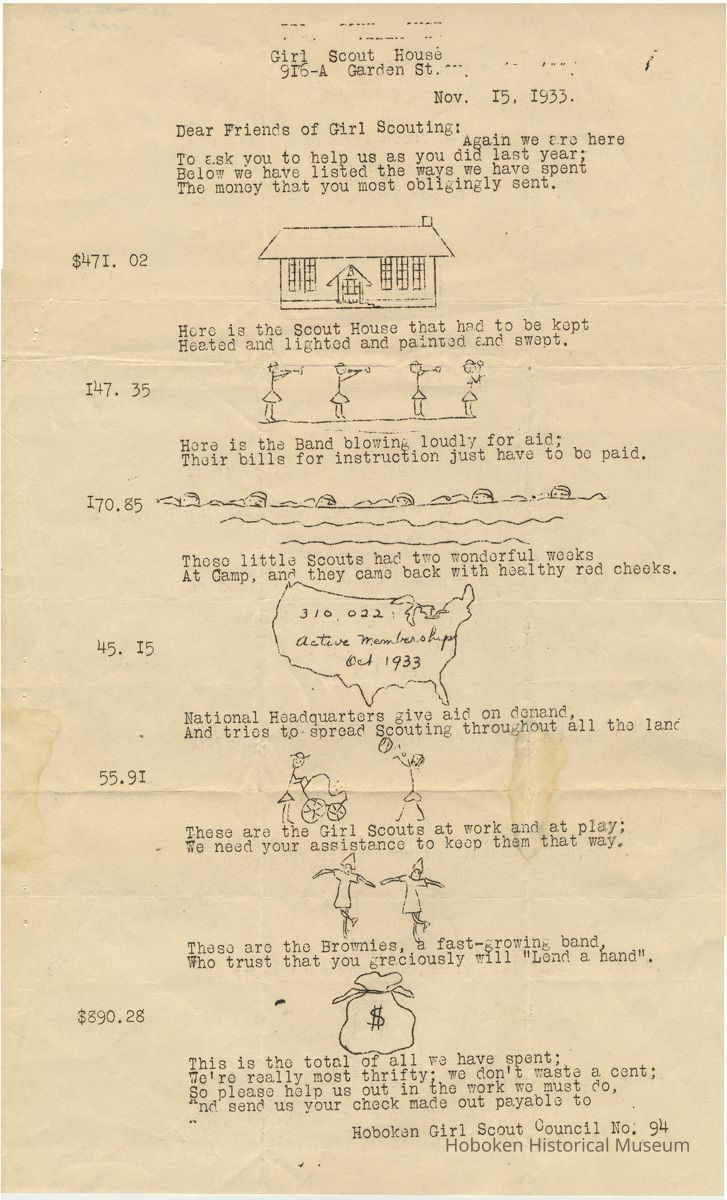 Girl Scout House
916-A Garden St.
Nov. 15, 1933.
Dear Friends of Girl Scouting:
Again we are here
To ask you to help us as you did last year;
Below we have listed the ways we have spent
The money that you most obligingly sent.
$471. 02
Here is the Scout House that had to be kept
Heated and lighted and painted and swept.
147. 35
Here is the Band blowing loudly for aid;
Their bills for instruction just have to be paid.
170.85
These little Scouts had two wonderful weeks
At Camp, and they came back with healthy red cheeks.
310,022
Active Memberships
Oct 1933
45. 15
National Headquarters give aid on demand,
And tries to spread Scouting throughout all the land
55.91
These are the Girl Scouts at work and at play;
We need your assistance to keep them that way.
These are the Brownies, a fast-growing band,
Who trust that you graciously will "Lend a hand".
$890.28
$
This is the total of all we have spent;
We're really most thrifty; we don't waste a cent;
So please help us out in the work we must do,
And send us your check made out payable to
Hoboken Girl Scout Council No. 94
Hoboken Historical Museum